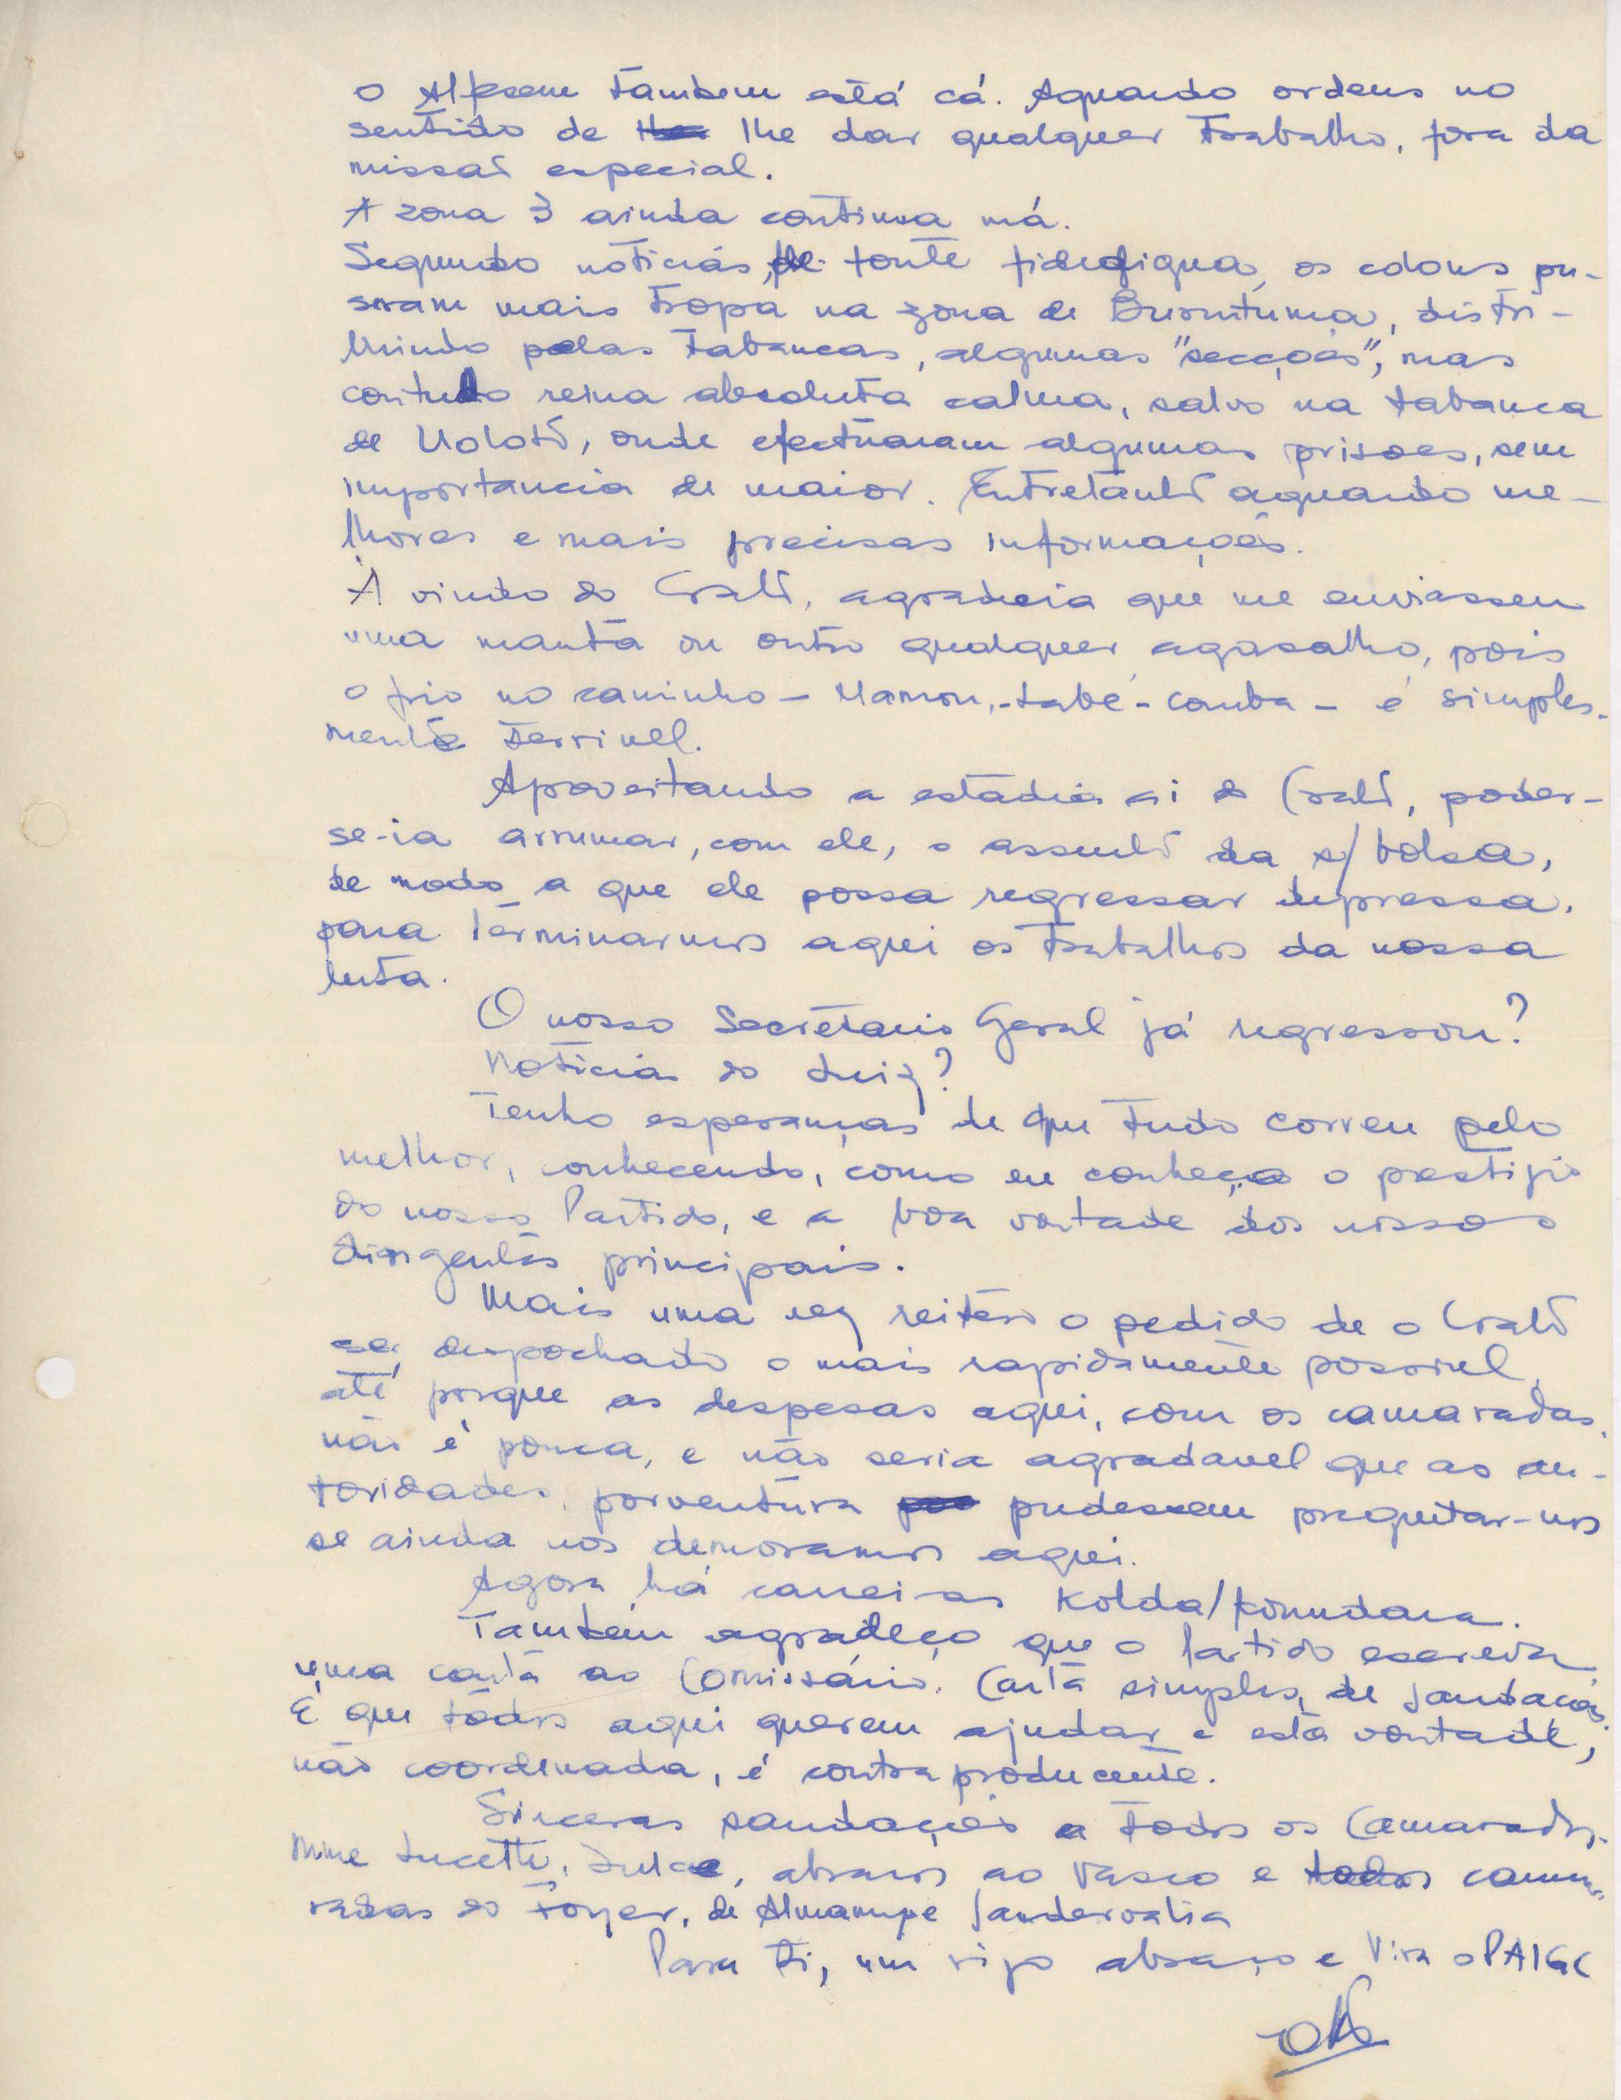 O Alfsem tambem está cá. Aguardo ordens no
sentido de lhe dar qualquer trabalho, fora da
missaõ especial.
A zona 3 ainda continua má.
Segundo noticias, de fonte fidedigna, os colonos pu-
seram mais tropa na zona de Buruntuma, distri-
buindo pelas tabancas, algumas "secções", mas
contudo reina absoluta calma, salvo na tabanca
de , onde efectuaram algumas prisoes, sem
importancia de maior. Entretanto aguardo me-
lhores e mais precisas informações.
À vinda do Cratô, agradecia que me enviassem
uma manta ou outro qualquer agasalho, pois
o frio no caminho - Mamou,-Labé-Counba - é simples-
mente terrivel.
Aproveitando a estadia ai do Cratô, poder-
se-ia arrumar, com ele, o assunto da s/ bolsa,
de modo a que ele possa regressar depressa,
para terminarmos aqui os trabalhos da nossa
luta.
O nosso Secretario Geral já regressou?
Noticias do Luiz?
Tenho esperanças de que tudo correu pelo
melhor, conhecendo, como eu conheço o prestigio
do nosso Partido, e a boa vontade dos nossos
dirigentes principais.
Mais uma vez reitero o pedido de o Cratô
ser despachado o mais rapidamente possivel,
até porque as despesas aqui, com os camaradas,
não é pouca, e não seria agradavel que as au-
toridades, porventura pudessem preguntar-nos
se ainda nos demoramos aqui.
Agora há carreiras Kolda/Koundara.
Também agradeço que o Partido escreva
uma carta ao Comissário. Carta simples, de saudação.
E que todos aqui querem ajudar e esta vontade,
não coordenada, é contraproducente.
Sinceras saudações a todos os Camaradas.
Mme Lucette, Dulce, abraços ao Vasco e todos cama-
radas do Foyer, de Almamype
Para ti, um rijo abraço e Viva o PAIGC